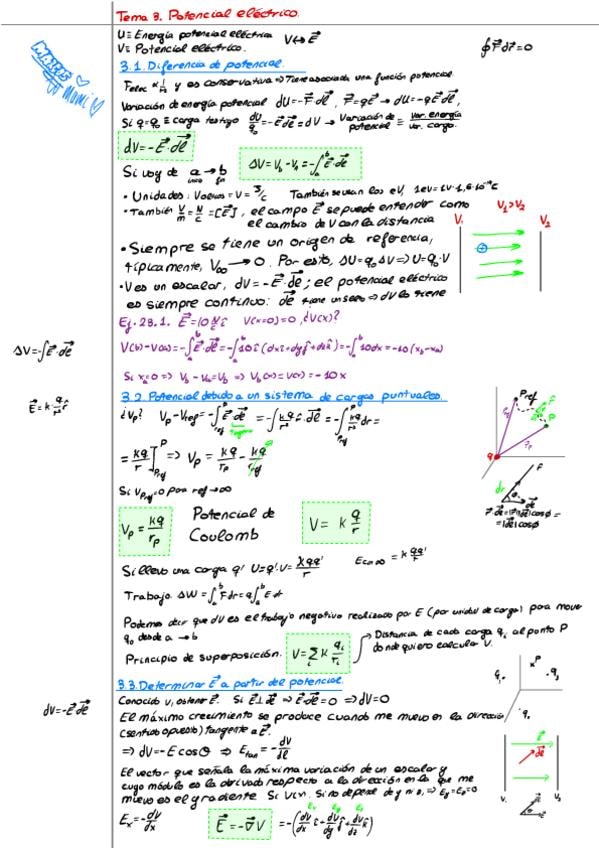 Tema 3. Potencial eléctrico.
U ≡ Energía potencial eléctrica
V ≡ Potencial eléctrico.
V ↔ E⃗
∮F⃗ dr⃗ = 0
3.1. Diferencia de potencial.
y es conservativa ⇒ Tiene asociada una función potencial
Variación de energía potencial dU = -F⃗·dl⃗, F⃗ = qE⃗ → dU = -qE⃗·dl⃗,
Si q = q₀ ≡ carga testigo dU/q₀ = -E⃗·dl⃗ = dV → Variación de potencial ≡ var. energía / var. carga.
dV = -E⃗·dl⃗
Si voy de a → b
ΔV = V_b - V_a = -∫_a^b E⃗·dl⃗
• Unidades: Voltios = V = J/C También se usan los eV, 1eV = 1V·1,6·10⁻¹⁹ C
• También V/m = N/C = [E⃗], el campo E⃗ se puede entender como
el cambio de V con la distancia
V₁ > V₂
V₁
V₂
• Siempre se tiene un origen de referencia,
típicamente, V∞ → 0. Por esto, ΔU = q₀ΔV ⇒ U = q₀·V
• V es un escalar, dV = -E⃗·dl⃗; el potencial eléctrico
es siempre continuo: dl⃗ tiene un salto ⇒ dV lo tiene
Ej. 23.1. E⃗ = 10 N/C î V(x=0) = 0, ¿V(x)?
ΔV = -∫E⃗·dl⃗
V(b) - V(a) = -∫_a^b E⃗·dl⃗ = -∫_a^b 10î (dxî + dyĵ + dzk̂) = -∫_a^b 10dx = -10(x_b - x_a)
Si x_a = 0 ⇒ V_b - V_a = V_b ⇒ V_b(x) = V(x) = -10x
3.2. Potencial debido a un sistema de cargas puntuales.
E⃗ = k·q/r² r̂
¿V_p? V_p - V_ref = -∫_ref^P E⃗·dl⃗ = -∫ kq/r² r̂·dl⃗ = -∫_Pref^P kq/r² dr =
= kq/r ]_Pref^P ⇒ V_p = kq/r_p - kq/r_ref
Si V_Pref = 0 para ref → ∞
V_p = kq/r_p
Potencial de
Coulomb
V = k q/r
Pref
P
q
r̂
dr
Si llevo una carga q' U = q'·V = kqq'/r
Trabajo. ΔW = ∫_a^b F dr = q∫_a^b E dr
Podemos decir que dV es el trabajo negativo realizado por E (por unidad de carga) para mover
q₀ desde a → b
Principio de superposición. V = Σ_i k q_i/r_i
→ Distancia de cada carga q_i al punto P
donde quiero calcular V.
3.3. Determinar E⃗ a partir del potencial.
q₁
xP
q₂
dV = -E⃗·dl⃗
Conocido V, obtener E⃗. Si E⃗ ⊥ dl⃗ ⇒ E⃗·dl⃗ = 0 ⇒ dV = 0
El máximo crecimiento se produce cuando me muevo en la dirección
(sentido opuesto) tangente a E⃗.
⇒ dV = -E cosθ ⇒ E_tan = -dV/dl
El vector que señala la máxima variación de un escalar y
cuyo módulo es la derivada respecto a la dirección en la que me
muevo es el gradiente. Si V(x). Si no depende de y ni z, ⇒ E_y = E_z = 0
E_x = -dV/dx
E⃗ = -∇⃗V
= -(dV/dx î + dV/dy ĵ + dV/dz k̂)
E_x E_y E_z
E⃗
dl⃗
V₁
V₂